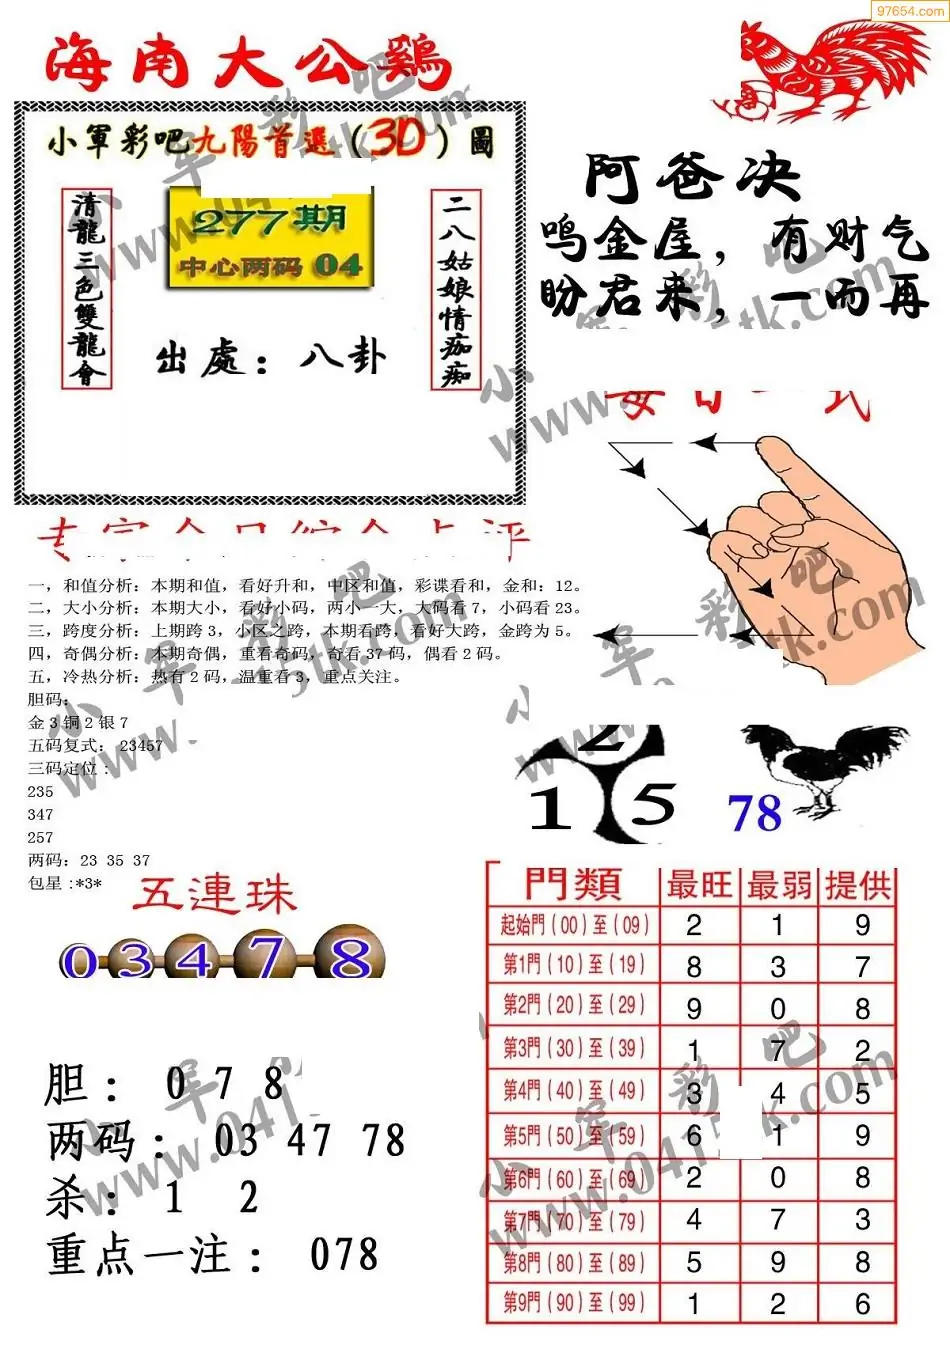 97654.com
海南大公鷄
小軍彩吧九陽首選(3D)圖
清龍三色雙龍會
277期
中心两码 04
二八姑娘情痴痴
出處：八卦
阿爸决
鸣金屋，有财气
盼君来，一而再
每日一式
专家今日综合点评
一，和值分析：本期和值，看好升和，中区和值，彩谍看和，金和：12。
二，大小分析：本期大小，看好小码，两小一大，大码看7，小码看23。
三，跨度分析：上期跨3，小区之跨，本期看跨，看好大跨，金跨为5。
四，奇偶分析：本期奇偶，重看奇码，奇看37码，偶看2码。
五，冷热分析：热有2码，温重看3，重点关注。
胆码：
金3铜2银7
五码复式： 23457
三码定位：
235
347
257
两码：23 35 37
包星:*3*
2
1 5
78
五連珠
0 3 4 7 8
胆： 0 7 8
两码： 03 47 78
杀： 1 2
重点一注： 078
門類 最旺 最弱 提供
起始門(00)至(09) 2 1 9
第1門(10)至(19) 8 3 7
第2門(20)至(29) 9 0 8
第3門(30)至(39) 1 7 2
第4門(40)至(49) 3 4 5
第5門(50)至(59) 6 1 9
第6門(60)至(69) 2 0 8
第7門(70)至(79) 4 7 3
第8門(80)至(89) 5 9 8
第9門(90)至(99) 1 2 6
小军彩吧